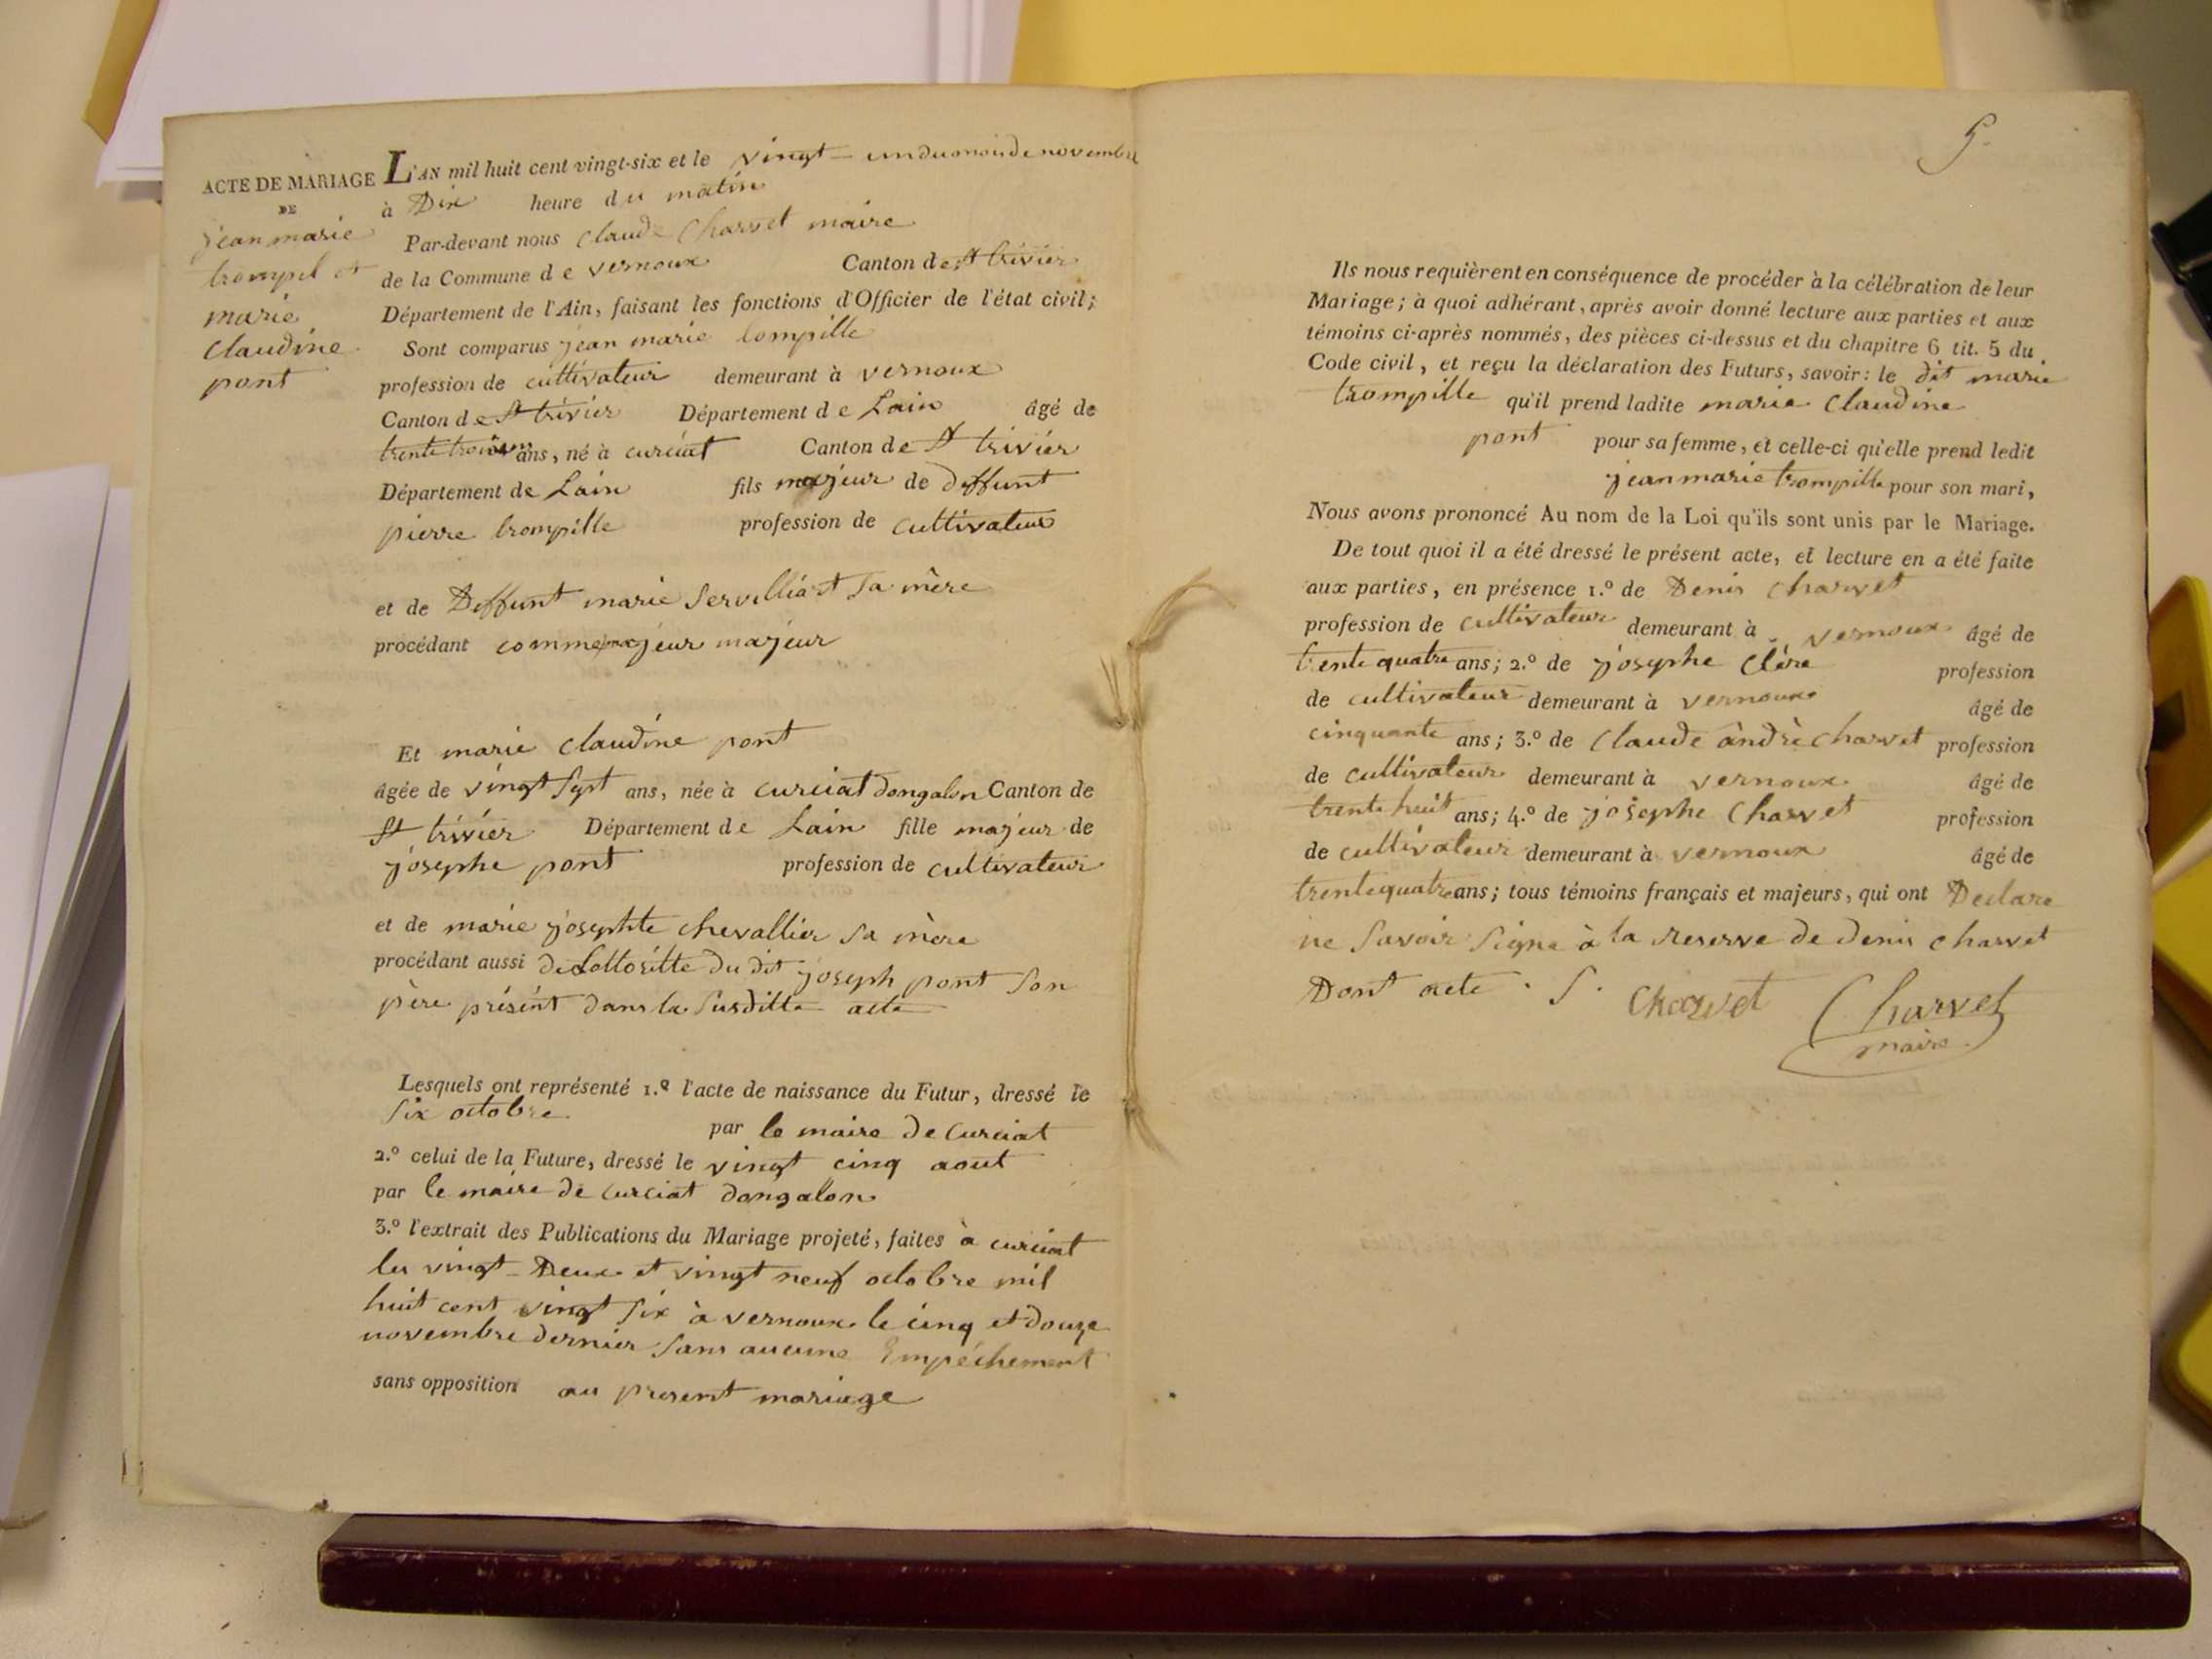 ACTE DE MARIAGE
DE
jean marie
trompil et
marie
claudine
pont
L'AN mil huit cent vingt-six et le vingt - un du mois de novembre
à Dix heure du matin
Par-devant nous claude Charvet maire
de la Commune de vernoux Canton de St trivier
Département de l'Ain, faisant les fonctions d'Officier de l'état civil;
Sont comparus jean marie tompille
profession de cultivateur demeurant à vernoux
Canton de St trivier Département de Lain âgé de
trente trois ans, né à curciat Canton de St trivier
Département de Lain fils majeur de deffunt
pierre trompille profession de cultivateur
et de Deffunt marie Servilliat Sa mère
procédant comme majeur majeur
Et marie claudine pont
âgée de vingt Sept ans, née à curciat dongalon Canton de
St trivier Département de Lain fille majeur de
josephe pont profession de cultivateur
et de marie josephte chevallier sa mère
procédant aussi de Lottoritte du dit joseph pont Son
père présent dans la Susditte acte
Lesquels ont représenté 1.º l'acte de naissance du Futur, dressé le
Six octobre par le maire de curciat
2.º celui de la Future, dressé le vingt cinq aout
par le maire de curciat dongalon
3.º l'extrait des Publications du Mariage projeté, faites à curciat
les vingt - Deux et vingt neuf octobre mil
huit cent vingt Six à vernoux le cinq et douze
novembre dernier Sans aucune Empéchement
sans opposition au present mariage
5.
Ils nous requièrent en conséquence de procéder à la célébration de leur
Mariage; à quoi adhérant, après avoir donné lecture aux parties et aux
témoins ci-après nommés, des pièces ci-dessus et du chapitre 6 tit. 5 du
Code civil, et reçu la déclaration des Futurs, savoir: le dit marie
trompille qu'il prend ladite marie Claudine
pont pour sa femme, et celle-ci qu'elle prend ledit
jean marie trompille pour son mari,
Nous avons prononcé Au nom de la Loi qu'ils sont unis par le Mariage.
De tout quoi il a été dressé le présent acte, et lecture en a été faite
aux parties, en présence 1.º de Denis Charvet
profession de cultivateur demeurant à vernoux âgé de
trente quatre ans; 2.º de josephe Clère profession
de cultivateur demeurant à vernoux âgé de
cinquante ans; 3.º de Claude àndrè charvet profession
de cultivateur demeurant à vernoux âgé de
trente huit ans; 4.º de josephe Charvet profession
de cultivateur demeurant à vernoux âgé de
trente quatre ans; tous témoins français et majeurs, qui ont Declare
ne Savoir Signe à la reserve de denis charvet
Dont acte. S.
Charvet Charvet
maire